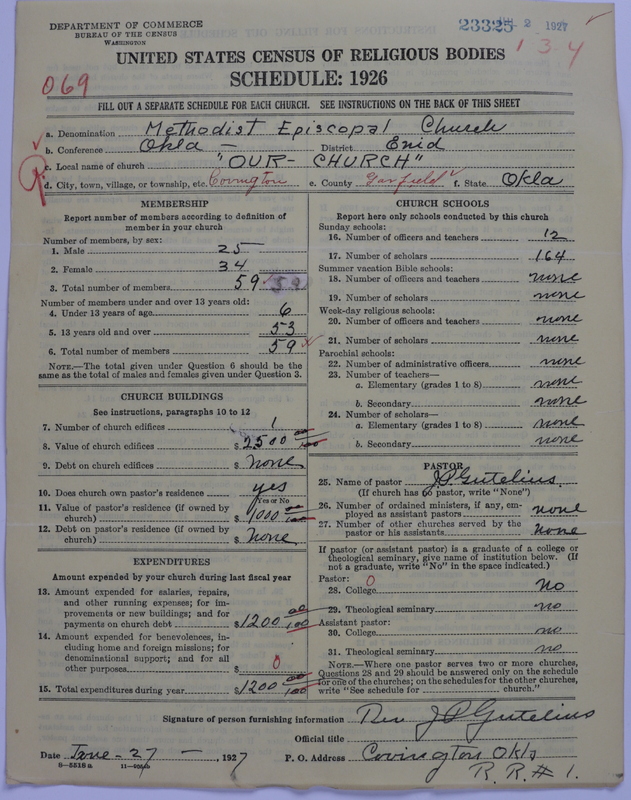 DEPARTMENT OF COMMERCE
BUREAU OF THE CENSUS
WASHINGTON
23325 JUL 2 1927
1 3-4
UNITED STATES CENSUS OF RELIGIOUS BODIES
SCHEDULE: 1926
069
FILL OUT A SEPARATE SCHEDULE FOR EACH CHURCH. SEE INSTRUCTIONS ON THE BACK OF THIS SHEET
a. Denomination Methodist Episcopal Church
b. Conference Okla — District Enid
c. Local name of church "OUR- CHURCH"
d. City, town, village, or township, etc. Covington e. County Garfield f. State Okla
MEMBERSHIP
Report number of members according to definition of member in your church
Number of members, by sex:
1. Male 25
2. Female 34
3. Total number of members 59 59
Number of members under and over 13 years old:
4. Under 13 years of age 6
5. 13 years old and over 53
6. Total number of members 59
NOTE.—The total given under Question 6 should be same as the total of males and females given under Question 3.
CHURCH BUILDINGS
See instructions, paragraphs 10 to 12
7. Number of church edifices 1
8. Value of church edifices $ 2500 00/100
9. Debt on church edifices $ None
10. Does church own pastor's residence yes
Yes or No
11. Value of pastor's residence (if owned by church) $ 1000 00/100
12. Debt on pastor's residence (if owned by church) $ None
EXPENDITURES
Amount expended by your church during last fiscal year
13. Amount expended for salaries, repairs, and other running expenses; for improvements or new buildings; and for payments on church debt $ 1200 00/100
14. Amount expended for benevolences, including home and foreign missions; for denominational support; and for all other purposes $ 0
15. Total expenditures during year $ 1200 00/100
CHURCH SCHOOLS
Report here only schools conducted by this church
Sunday schools:
16. Number of officers and teachers 12
17. Number of scholars 164
Summer vacation Bible schools:
18. Number of officers and teachers none
19. Number of scholars none
Week-day religious schools:
20. Number of officers and teachers none
21. Number of scholars none
Parochial schools:
22. Number of administrative officers none
23. Number of teachers—
a. Elementary (grades 1 to 8) none
b. Secondary none
24. Number of scholars—
a. Elementary (grades 1 to 8) none
b. Secondary none
PASTOR
25. Name of pastor J P Gutelius
(If church has no pastor, write "None")
26. Number of ordained ministers, if any, employed as assistant pastors none
27. Number of other churches served by the pastor or his assistants None
If pastor (or assistant pastor) is a graduate of a college or theological seminary, give name of institution below. (If not a graduate, write "No" in the space indicated.)
Pastor: 0
28. College No
29. Theological seminary no
Assistant pastor:
30. College no
31. Theological seminary no
NOTE.—Where one pastor serves two or more churches, Questions 28 and 29 should be answered only on the schedule for one of the churches; on the schedules for the other churches, write "See schedule for church."
Signature of person furnishing information Rev J P Gutelius
Official title
Date June - 27 — , 1927 P. O. Address Covington Okla
R.R.# 1.
8—5516 a